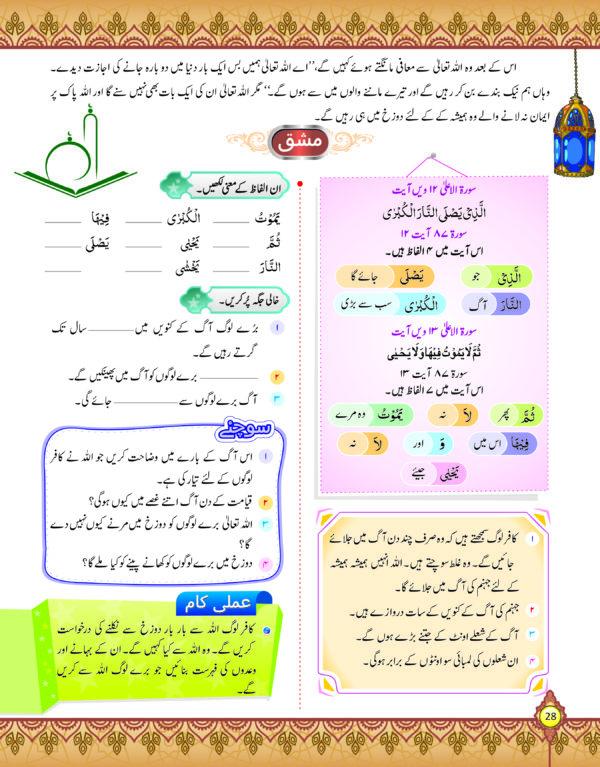 اس کے بعد وہ اللہ تعالیٰ سے معافی مانگتے ہوئے کہیں گے، ''اے اللہ تعالیٰ ہمیں بس ایک بار دنیا میں دوبارہ جانے کی اجازت دیدے۔
وہاں ہم نیک بندے بن کر رہیں گے اور تیرے ماننے والوں میں سے ہوں گے۔'' مگر اللہ تعالیٰ ان کی ایک بات بھی نہیں سنے گا اور اللہ پاک پر
ایمان نہ لانے والے وہ ہمیشہ کے کے لئے دوزخ میں ہی رہیں گے۔
مشق
سورۃ الاعلیٰ ۱۲ ویں آیت
الَّذِیْ یَصْلَی النَّارَ الْكُبْرٰی
سورۃ ۸۷ آیت ۱۲
اس آیت میں ۴ الفاظ ہیں۔
الَّذِیْ جو یَصْلَی جائے گا
النَّارَ آگ الْكُبْرٰی سب سے بڑی
سورۃ الاعلیٰ ۱۳ ویں آیت
ثُمَّ لَا یَمُوْتُ فِیْهَا وَلَا یَحْیٰی
سورۃ ۸۷ آیت ۱۳
اس آیت میں ۷ الفاظ ہیں۔
ثُمَّ پھر لَا نہ یَمُوْتُ وہ مرے
فِیْهَا اس میں وَ اور لَا نہ
یَحْیٰی جیئے
۱ کافر لوگ سمجھتے ہیں کہ وہ صرف چند دن آگ میں جلائے
جائیں گے۔ وہ غلط سوچتے ہیں۔ اللہ انہیں ہمیشہ ہمیشہ
کے لئے جہنم کی آگ میں جلائے گا۔
۲ جہنم کی آگ کے کنویں کے سات دروازے ہیں۔
۳ آگ کے شعلے اونٹ کے جتنے بڑے ہوں گے۔
۴ ان شعلوں کی لمبائی سو اونٹوں کے برابر ہوگی۔
ان الفاظ کے معنی لکھیں۔
یَمُوْتُ ______ الْكُبْرٰی ______ فِیْهَا ______
ثُمَّ ______ یَحْیٰی ______ یَصْلَی ______
النَّارَ ______ یَخْشٰی ______
خالی جگہ پُر کریں۔
۱ بڑے لوگ آگ کے کنویں میں ________ سال تک
گرتے رہیں گے۔
۲ ________ برے لوگوں کو آگ میں پھینکیں گے۔
۳ آگ برے لوگوں سے ________ جائے گی۔
سوچئے
۱ اس آگ کے بارے میں وضاحت کریں جو اللہ نے کافر
لوگوں کے لئے تیار کی ہے۔
۲ قیامت کے دن آگ اتنے غصے میں کیوں ہوگی؟
۳ اللہ تعالیٰ برے لوگوں کو دوزخ میں مرنے کیوں نہیں دے
گا؟
۴ دوزخ میں برے لوگوں کو کھانے پینے کو کیا ملے گا؟
عملی کام
کافر لوگ اللہ سے بار بار دوزخ سے نکلنے کی درخواست
کریں گے۔ وہ اللہ سے کیا کہیں گے۔ ان کے بہانے اور
وعدوں کی فہرست بنائیں جو برے لوگ اللہ سے کریں
گے۔
28